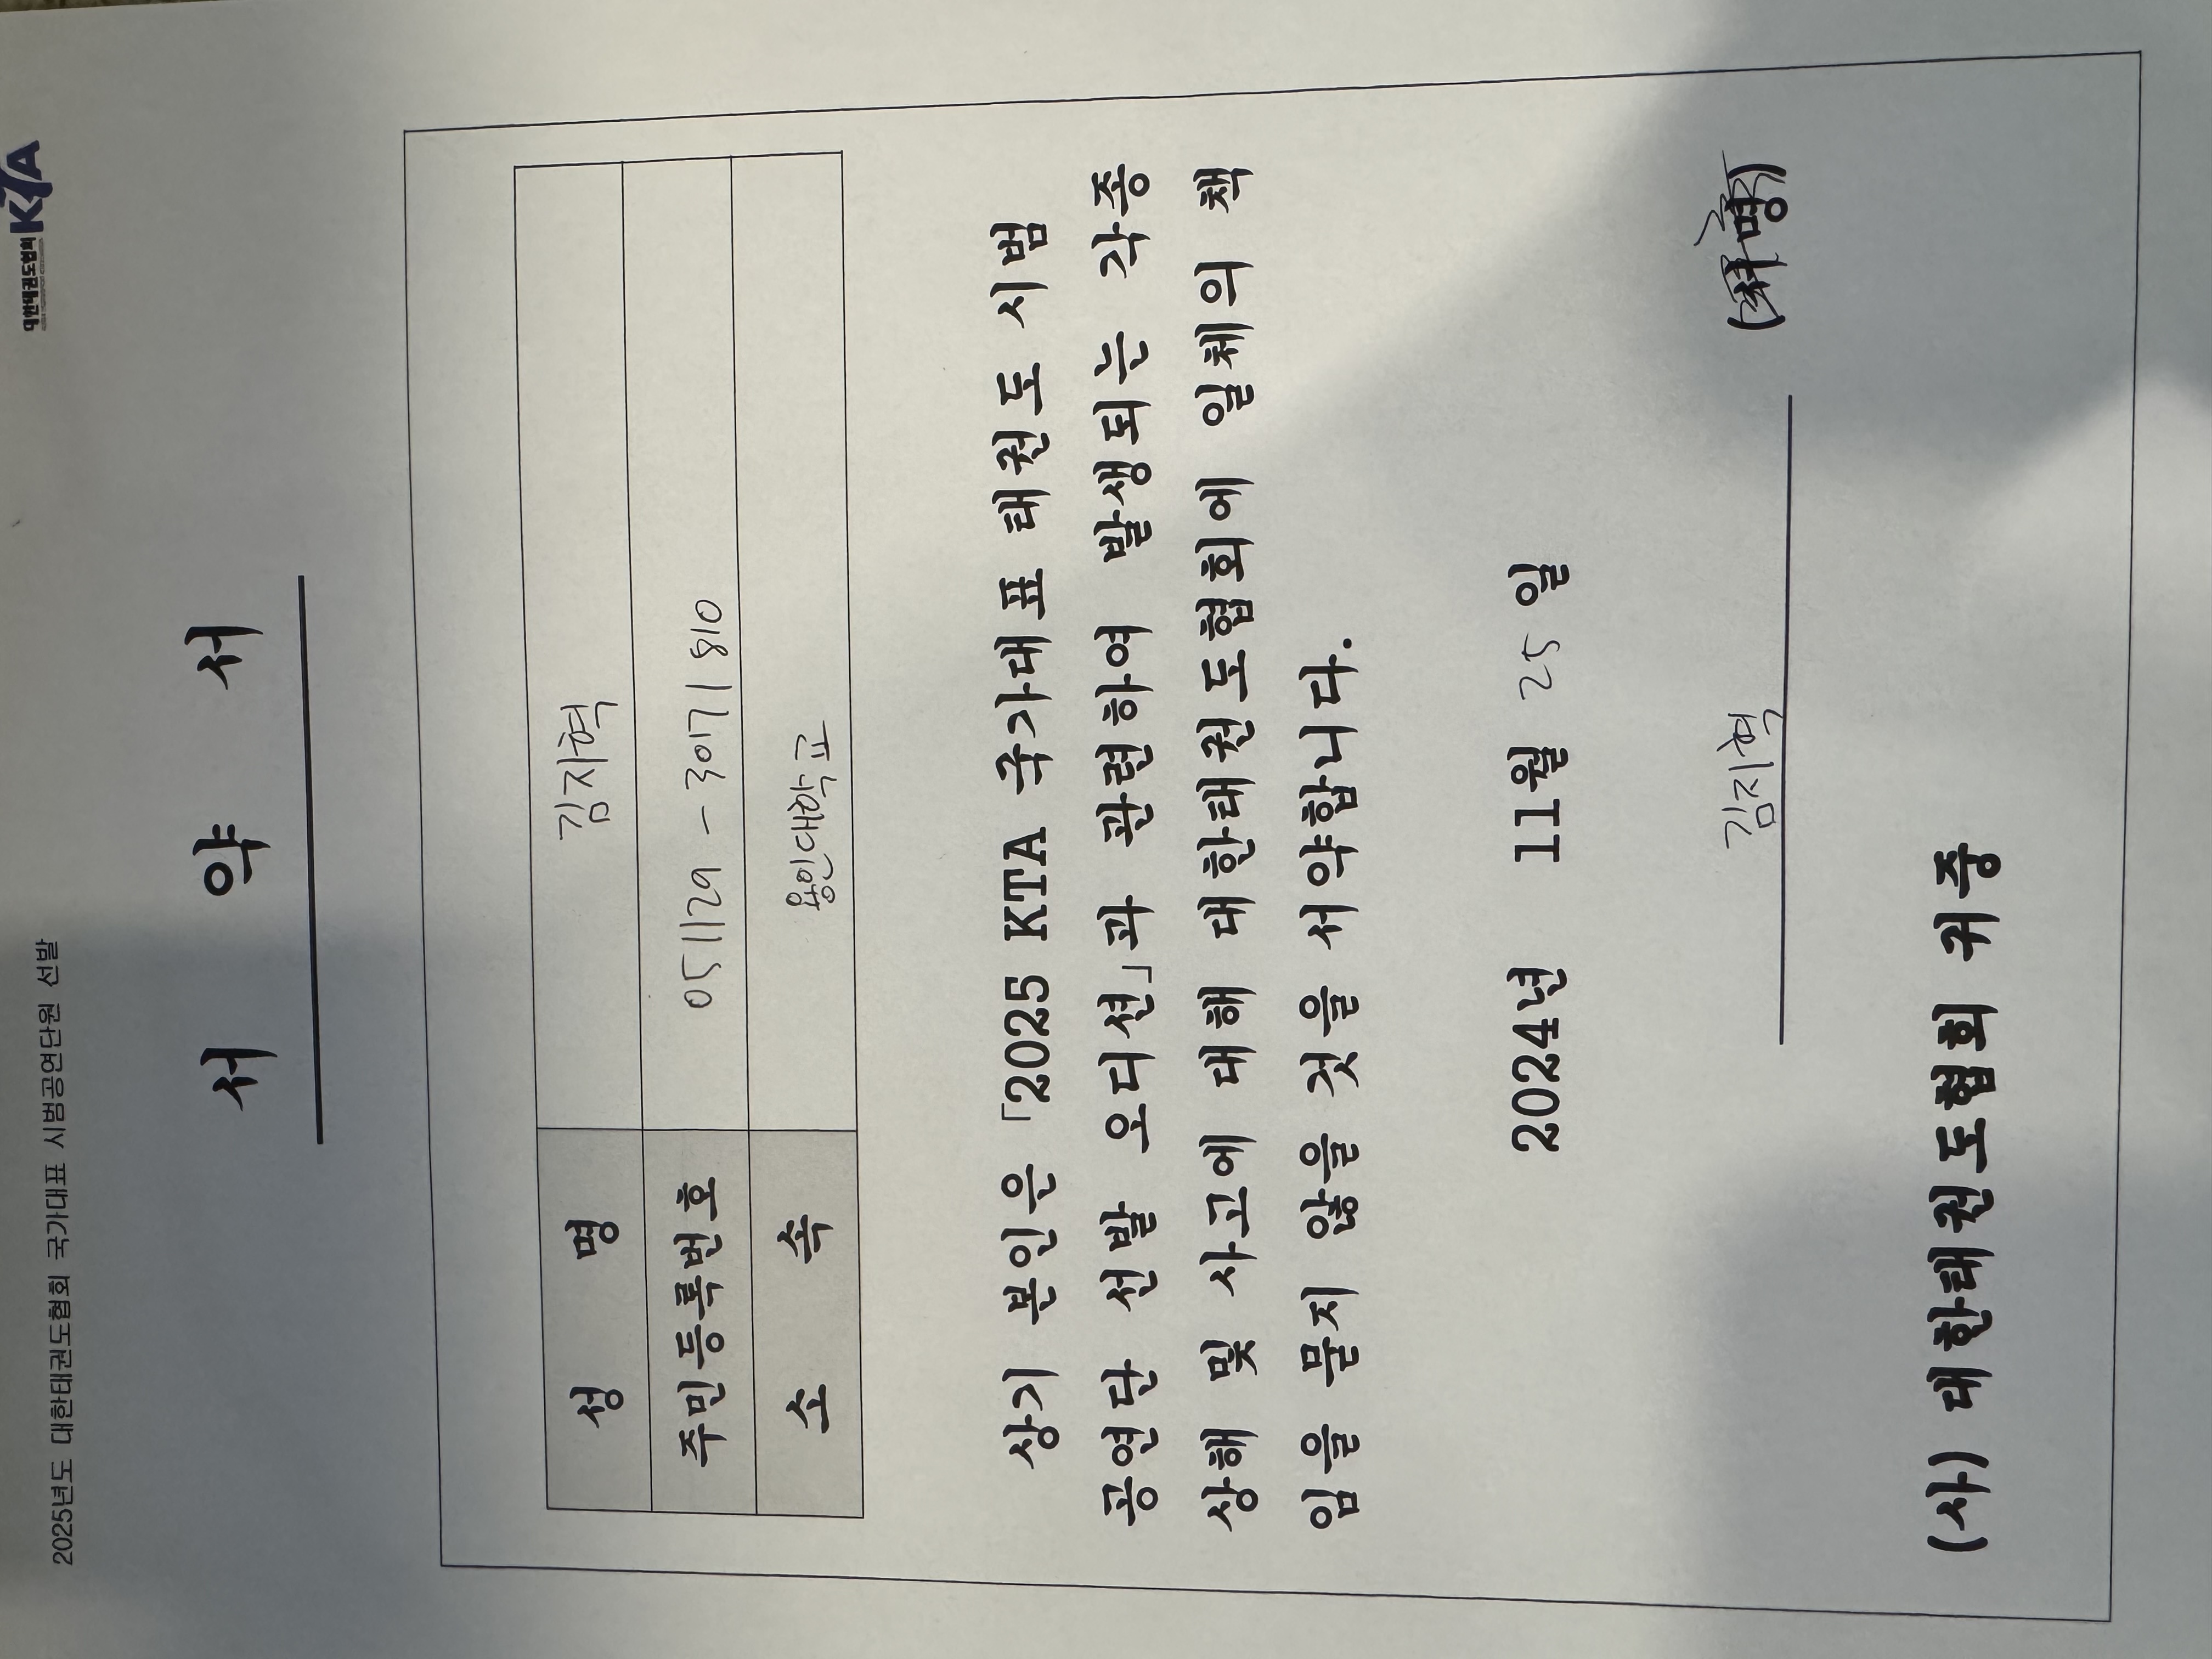 2025년도 대한태권도협회 국가대표 시범공연단원 선발
대한태권도협회 KTA
서 약 서
성 명 김지혁
주민등록번호 051129 - 3017810
소 속 용인대학교
상기 본인은 「2025 KTA 국가대표 태권도 시범
공연단 선발 오디션」과 관련하여 발생되는 각종
상해 및 사고에 대해 대한태권도협회에 일체의 책
임을 묻지 않을 것을 서약합니다.
2024년 11월 25일
김지혁 (서명)
(사) 대한태권도협회 귀중